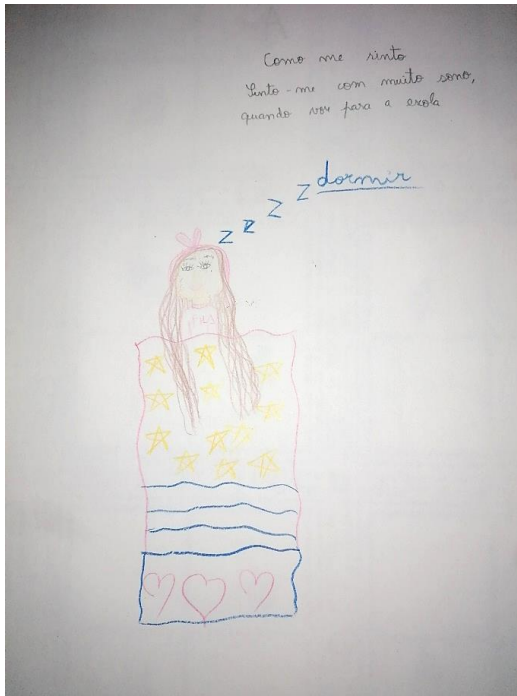 Como me sinto
Sinto-me com muito sono,
quando vou para a escola
z z z z dormir